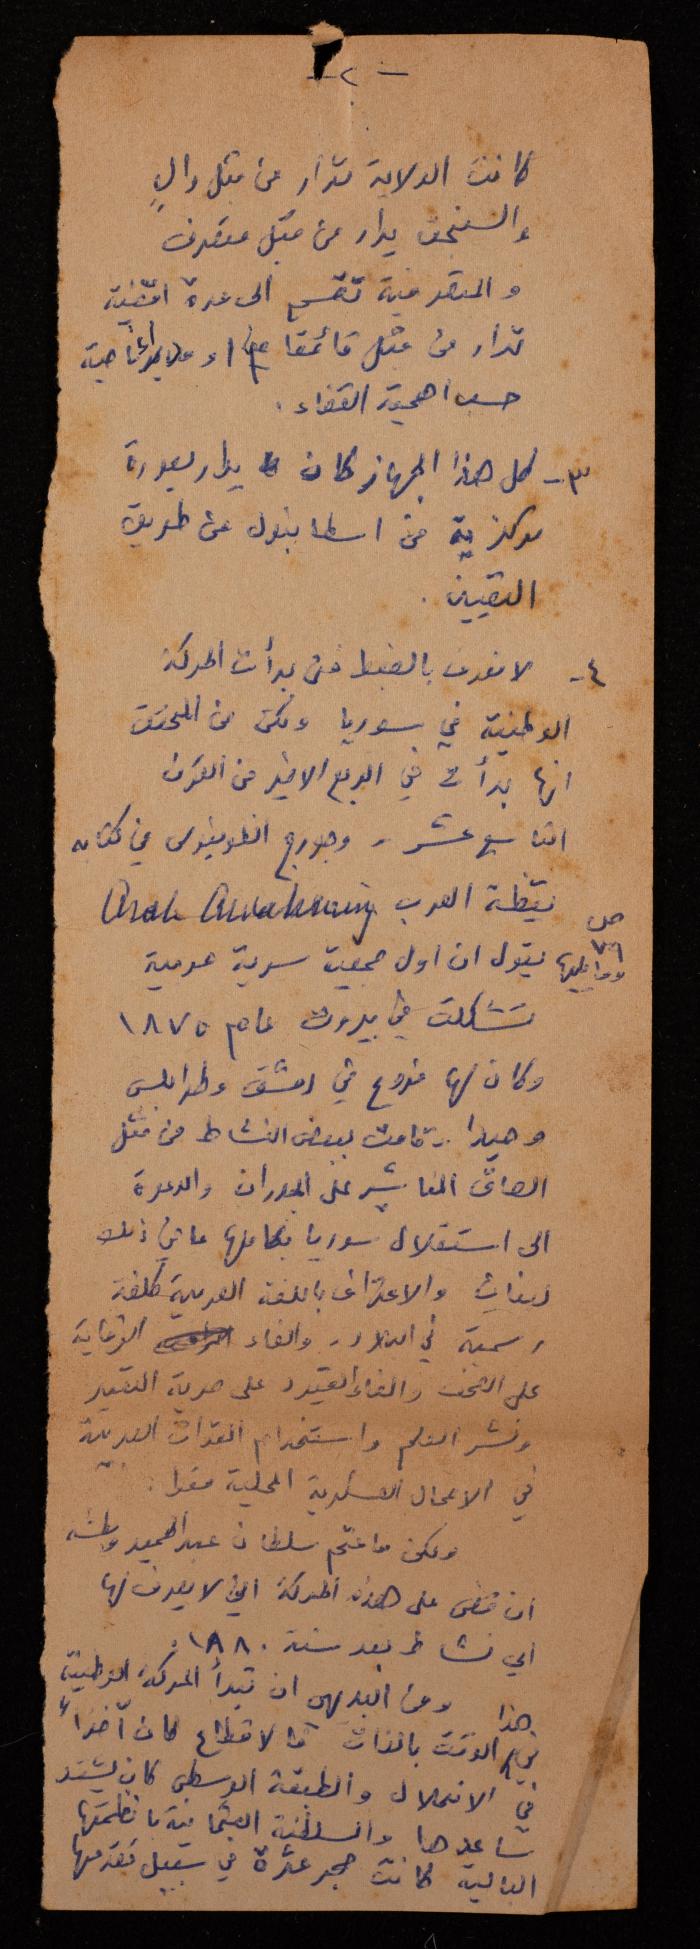 - ٢ -
كانت الولاية تدار من قبل والٍ
والسنجق يدار من قبل متصرف
والمتصرفية تقسم الى عدة اقضية
تدار من قبل قائمقام او
حسب اهمية القضاء .
٣- كل هذا الجهاز كان يدار بصورة
مركزية من اسطانبول عن طريق
التعيين .
٤- لا نعرف بالضبط متى بدأت الحركة
الوطنية في سوريا ولكن من المحقق
انها بدأت في الربع الاخير من القرن
التاسع عشر . وجورج انطونيوس في كتابه
يقظة العرب Arab Awakening
ص ٧٩ وما يليها يقول ان اول جمعية سرية عربية
تشكلت في بيروت عام ١٨٧٥
وكان لها فروع في دمشق وطرابلس
وصيدا . قامت ببعض النشاط من مثل
الصاق المناشير على الجدران والدعوة
الى استقلال سوريا بكاملها بما في ذلك
لبنان والاعتراف باللغة العربية كلغة
رسمية في البلاد . والغاء الرقابة
على الصحف والغاء القيود على حرية التعبير
ونشر العلم واستخدام القوات العربية
في الاعمال العسكرية المحلية فقط .
ولكن ما عتم سلطان عبد الحميد
ان قضى على هذه الحركة التي لا يعرف لها
اي نشاط بعد سنة ١٨٨٠ .
ومن البديهي ان تبدأ الحركة الوطنية
في هذا الوقت بالذات فالاقطاع كان آخذاً
في الانحلال والطبقة الوسطى كان يشتد
ساعدها والسلطنة العثمانية بانظمتها
البالية كانت حجر عثرة في سبيل تقدمها